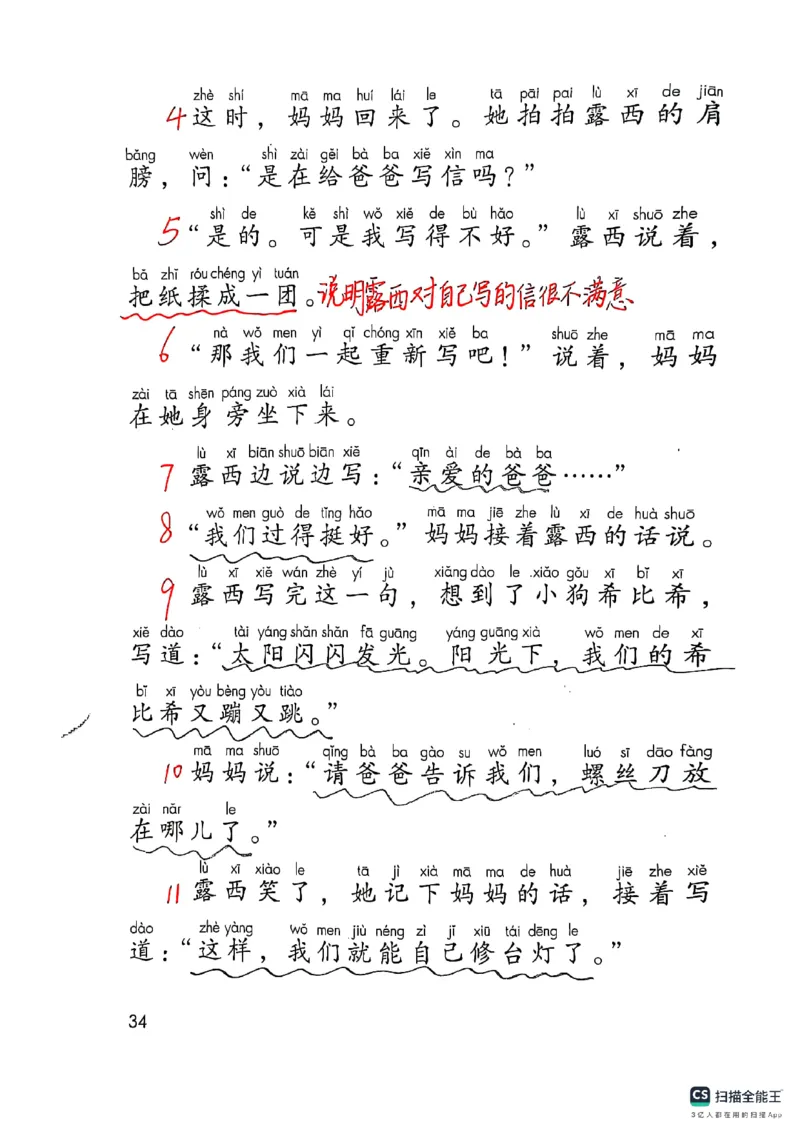 zhè shí mā ma huí lái le tā pāi pai lù xī de jiān
4这时，妈妈回来了。她拍拍露西的肩
bǎng wèn shì zài gěi bà ba xiě xìn ma
膀，问：“是在给爸爸写信吗？”
shì de kě shì wǒ xiě de bù hǎo lù xī shuō zhe
5“是的。可是我写得不好。”露西说着，
bǎ zhǐ róu chéng yì tuán
把纸揉成一团。说明露西对自己写的信很不满意
nà wǒ men yì qǐ chóng xīn xiě ba shuō zhe mā ma
6“那我们一起重新写吧！”说着，妈妈
zài tā shēn páng zuò xià lái
在她身旁坐下来。
lù xī biān shuō biān xiě qīn ài de bà ba
7露西边说边写：“亲爱的爸爸……”
wǒ men guò de tǐng hǎo mā ma jiē zhe lù xī de huà shuō
8“我们过得挺好。”妈妈接着露西的话说。
lù xī xiě wán zhè yí jù xiǎng dào le xiǎo gǒu xī bǐ xī
9露西写完这一句，想到了小狗希比希，
xiě dào tài yáng shǎn shǎn fā guāng yáng guāng xià wǒ men de xī
写道：“太阳闪闪发光。阳光下，我们的希
bǐ xī yòu bèng yòu tiào
比希又蹦又跳。”
mā ma shuō qǐng bà ba gào su wǒ men luó sī dāo fàng
10妈妈说：“请爸爸告诉我们，螺丝刀放
zài nǎr le
在哪儿了。”
lù xī xiào le tā jì xià mā ma de huà jiē zhe xiě
11露西笑了，她记下妈妈的话，接着写
dào zhè yàng wǒ men jiù néng zì jǐ xiū tái dēng le
道：“这样，我们就能自己修台灯了。”
34
CS 扫描全能王
3亿人都在用的扫描App